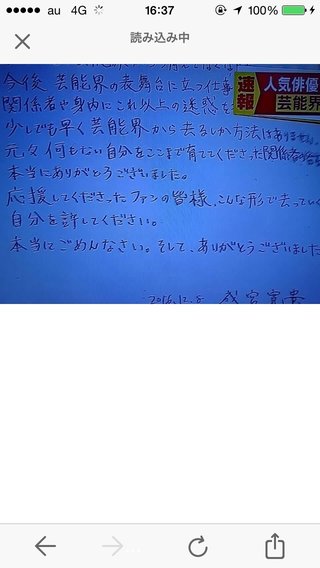 au 4G 16:37 100%
読み込み中
速報
人気俳優
芸能界
今後、芸能界の表舞台に立つ仕事
関係者や身内にこれ以上の迷惑を
少しでも早く芸能界から去るしか方法はありません。
元々何もない自分をここまで育ててくださった関係者の
本当にありがとうございました。
応援してくださったファンの皆様、こんな形で去っていく
自分を許してください。
本当にごめんなさい。そして、ありがとうございました
2016.12.8 成宮寛貴